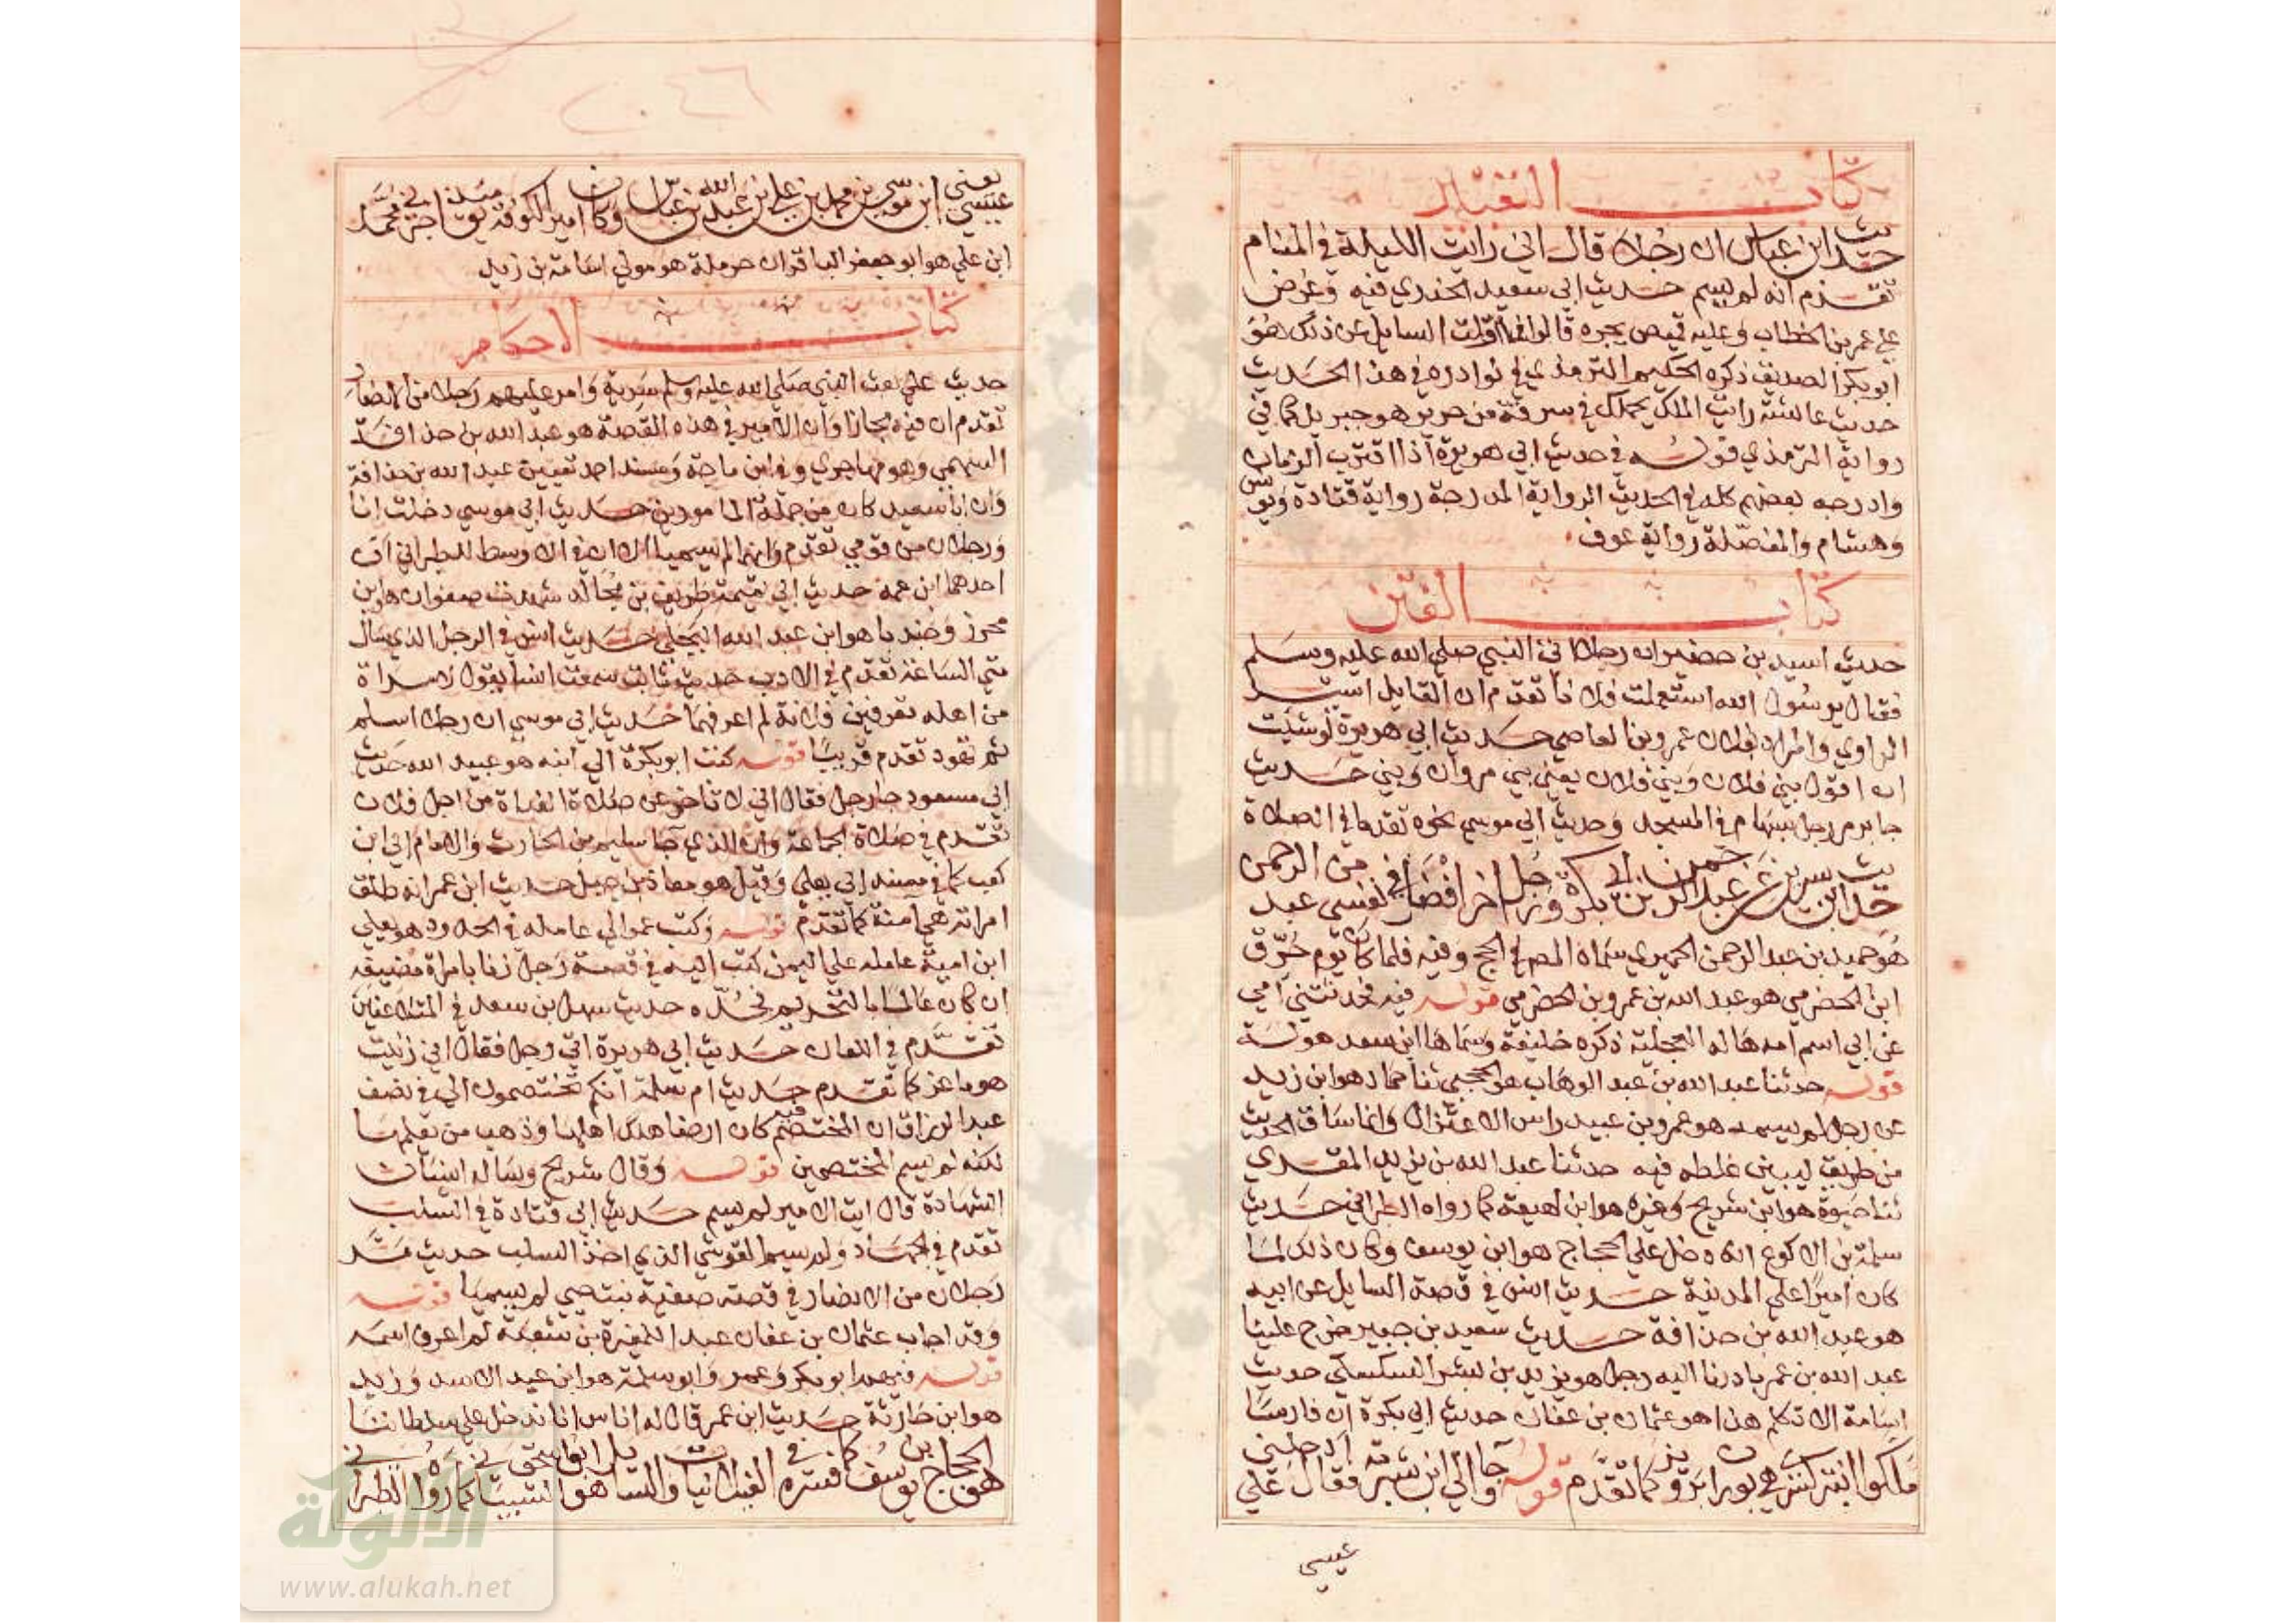 كتاب التعبير
حديث ابن عباس ان رجلا قال اني رايت الليلة في المنام
تقدم انه لم يسم حديث ابي سعيد الخدري فيه وعرض
علي عمر بن الخطاب وعليه قميص يجره قالوا فما اولت السايل عن ذلك هو
ابو بكر الصديق ذكره الحكيم الترمذي في نوادره في هذا الحديث
حديث عائشة رايت الملك يحملك في سرقة من حرير هو جبريل كما في
رواية الترمذي قوله في حديث ابي هريرة اذا اقترب الزمان
وادرجه بعضهم كله في الحديث الرواية المدرجة رواية قتادة ويونس
وهشام والمفصلة رواية عوف
كتاب الفتن
حديث اسيد بن حضير ان رجلا اتى النبي صلي الله عليه وسلم
فقال يرسول الله استعملت فلانا تقدم ان القايل اسيد
الراوي والمراد بفلان عمرو بن العاصي حديث ابي هريرة لو شيت
ان اقول بني فلان وبني فلان يعني بني مروان وبني حديث
جابر مر رجل بسهام في المسجد وحديث ابي موسي نحوه تقدما في الصلاة
حديث ابن سيرين عن عبد الرحمن بن ابي بكرة ورجل اخر افضل في نفسي من عبد الرحمن
هو حميد بن عبد الرحمن الحميري سماه المص في الحج وفيه فلما كان يوم حرق
ابن الحضرمي هو عبد الله بن عمرو بن الحضرمي قوله فيه فحدثتني امي
عن ابي اسم امه هالة العجلية ذكره خليفة وسماها ابن سعد هولة
قوله حدثنا عبد الله بن عبد الوهاب هو الحجبي ثنا حماد هو ابن زيد
عن رجل لم يسمه هو عمرو بن عبيد راس الاعتزال وانما ساق الحديث
من طريق ليبين غلطه فيه حدثنا عبد الله بن يزيد المقدي
ثنا حيوة هو ابن شريح وغيره هو ابن لهيعة كما رواه الطبراني حديث
سلمة بن الاكوع انه دخل علي الحجاج هو ابن يوسف وكان ذلك لما
كان اميرا علي المدينة حديث انس في قصة السايل عن ابيه
هو عبد الله بن حذافة حديث سعيد بن جبير خرج علينا
عبد الله بن عمر بادرنا اليه رجل هو يزيد بن بشر السكسكي حديث
اسامة الا تكلم هذا هو عثمان بن عفان حديث ابي بكرة ان فارسا
ملكوا ابنت كسرى هي بوران بن ابرويز كما تقدم قوله جا والي ابن شبرمة فقال ادخلني علي
عيسي
يعني عيسي ابن موسي بن محمد بن علي بن عبد الله بن عباس وكان امير الكوفة يومئذ اخبرني محمد
ابن علي هو ابو جعفر الباقر ان حرملة هو مولي اسامة بن زيد
كتاب الاحكام
حديث علي بعث النبي صلي الله عليه وسلم سرية وامر عليهم رجلا من الانصار
تقدم ان فيه مجازا وان الامير في هذه القصة هو عبد الله بن حذافة
السهمي وهو مهاجري وفي ابن ماجة ومسند احمد تعيين عبد الله بن حذافة
وان ابا سعيد كان من جملة المامورين حديث ابي موسي دخلت انا
ورجلان من قومي تقدم وانهما لم يسميا الا ان في الاوسط للطبراني ان
احدهما ابن عمه حديث ابي تميمة طريف بن مجالد شهدت صفوان هو ابن
محرز وجندبا هو ابن عبد الله البجلي حديث انس في الرجل الذي سال
متي الساعة تقدم في الادب حديث ثابت سمعت انسا يقول لامراة
من اهله تعرفين فلانة لم اعرفهما حديث ابي موسي ان رجلا اسلم
ثم تهود تقدم قريبا قوله كتب ابو بكرة الي ابنه هو عبيد الله حديث
ابي مسعود جا رجل فقال اني لا تاخر عن صلاة الغداة من اجل فلان
تقدم في صلاة الجماعة وان الذي جا سليم بن الحارث والامام ابي ابن
كعب كما في مسند ابي يعلي وقيل هو معاذ بن جبل حديث ابن عمر انه طلق
امراته هي امنة كما تقدم قوله وكتب عمر الي عامله في الحدود هو يعلي
ابن امية عامله علي اليمن كتب اليه في قصة رجل زنا بامراة مضيفه
ان كان عالما بالتحريم فحده حديث سهل بن سعد في المتلاعنين
تقدم في اللعان حديث ابي هريرة اتي رجل فقال اني زنيت
هو ماعز كما تقدم حديث ام سلمة انكم تختصمون الي في نصف
عبد الرزاق ان المختصم فيه كان ارضا هلك اهلها وذهب من يعلمها
لكنه لم يسم المختصمين قوله وقال شريح وساله انسان
الشهادة قال ايت الامير لم يسم حديث ابي قتادة في السلب
تقدم في الجهاد ولم يسم القرشي الذي اخذ السلب حديث مر
رجلان من الانصار في قصة صفية بنت حيي لم يسميا قوله
وقد اجاب عثمان بن عفان عبدا للمغيرة بن شعبة لم اعرف اسمه
قوله فيهم ابو بكر وعمر وابو سلمة هو ابن عبد الاسد وزيد
هو ابن حارثة حديث ابن عمر قال له اناس انا ندخل علي سلطاننا
هو الحجاج بن يوسف كما فسره في الغيلانيات والسايل هو ابو اسحق الشيباني كما رواه الطبراني
الألوكة
www.alukah.net